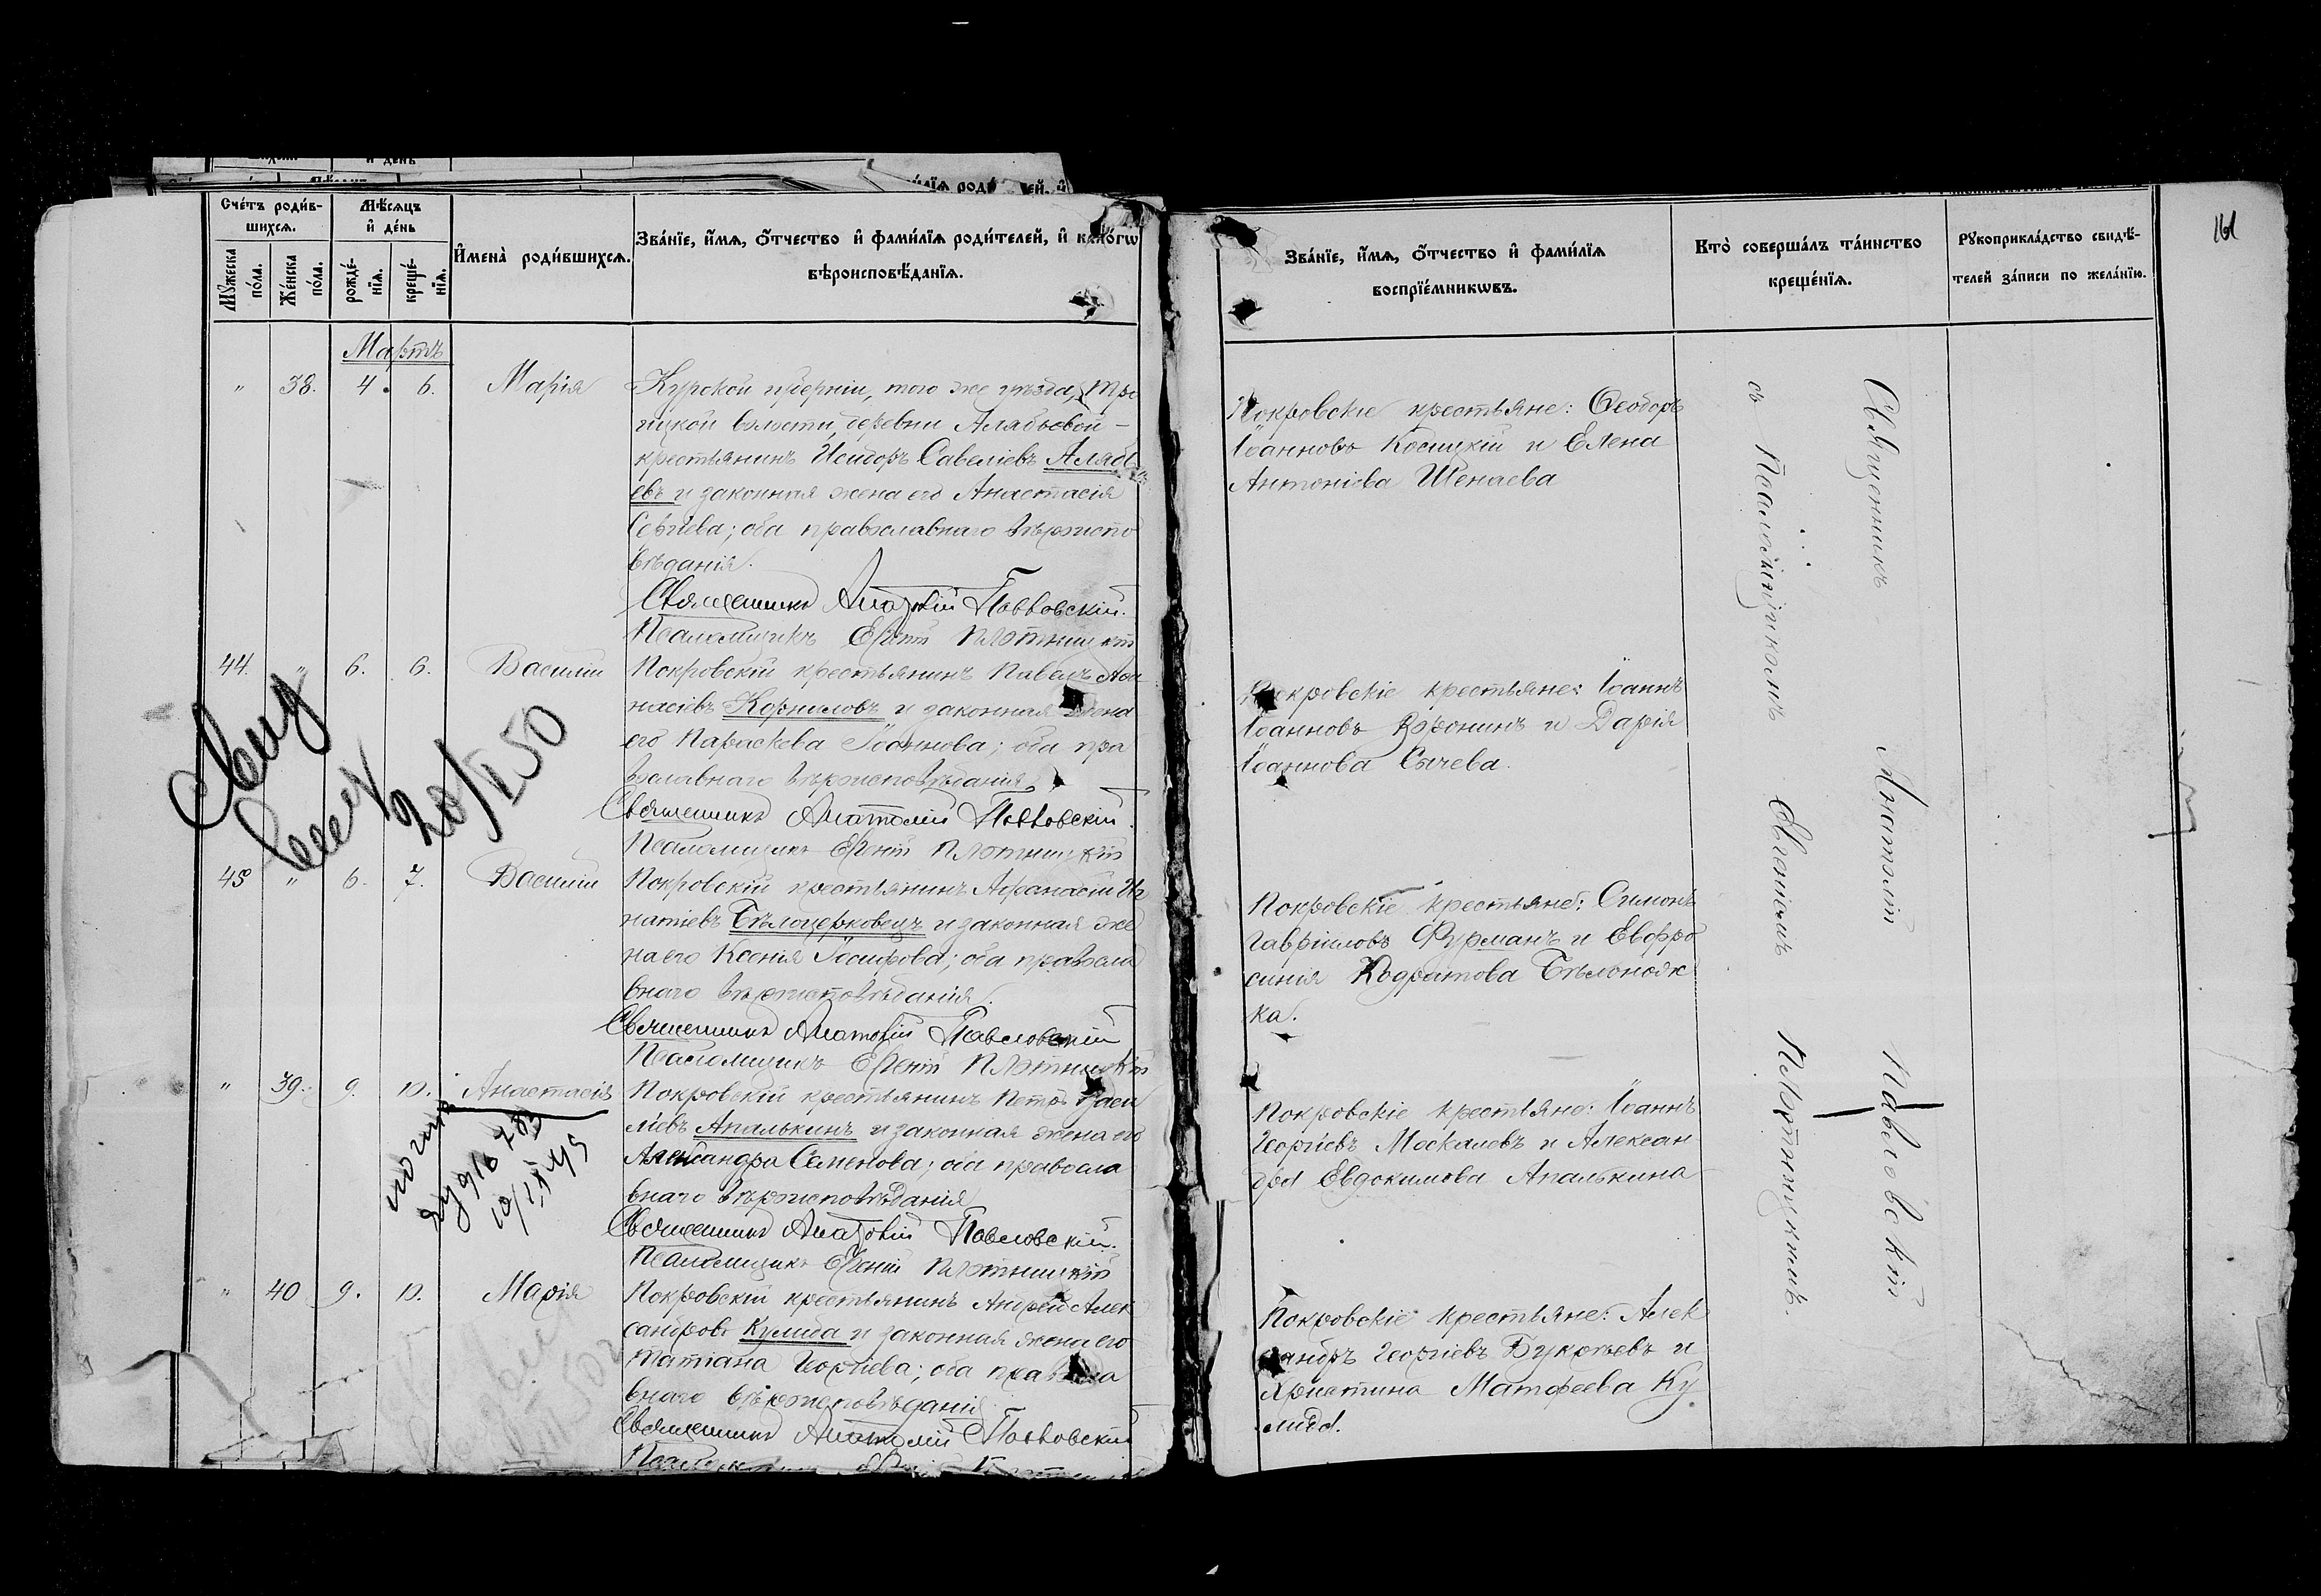 Сче́тъ роди́в-
шихсѧ.
Мѣ́сѧцъ
и҆ де́нь
И҆мена̀ роди́вшихсѧ.
Зва́нїе, и҆́мѧ, ѻ҆́тчество и҆ фами́лїѧ роди́телей, и҆ како́гѡ
вѣроисповѣ́данїѧ.
Мꙋ́жеска
по́ла.
Же́нска
по́ла.
рожде́-
нїѧ.
креще́-
нїѧ.
Мартъ
" 38. 4. 6. Марія
Курской губерніи, того же уѣзда, Тро
ицкой волости, деревни Алябьевой –
крестьянинъ Исидоръ Савеліевъ Алябь
евъ и законная жена его Анастасія
Сергіева; оба православнаго вѣроиспо
вѣданія.
Священникъ Анатолій Павловскій.
Псаломщикъ Евгеній Плотницкій
44. " 6. 6. Василій
Покровскій крестьянинъ Павелъ Аѳа
насіевъ Корниловъ и законная жена
его Параскева Іоаннова; оба пра
вославнаго вѣроисповѣданія.
Священникъ Анатолій Павловскій.
Псаломщикъ Евгеній Плотницкій
45 " 6. 7. Василій
Покровскій крестьянинъ Афанасій Иг
натіевъ Бѣлоцерковецъ и законная же
на его Ксенія Іосифова; оба правосла
внаго вѣроисповѣданія.
Священникъ Анатолій Павловскій
Псаломщикъ Евгеній Плотницкій
" 39. 9. 10. Анастасія
Покровскій крестьянинъ Петръ Васи
ліевъ Апалькинъ и законная жена его
Александра Семенова; оба правосла
внаго вѣроисповѣданія
Священникъ Анатолій Павловскій.
Псаломщикъ Евгеній Плотницкій
" 40 9. 10. Марія
Покровскій крестьянинъ Андрей Алек
сандровъ Кулида и законная жена его
Татіана Георгіева; оба правосла
внаго вѣроисповѣданія.
Священникъ Анатолій Павловскій
20/V 50
161
Зва́нїе, и҆́мѧ, ѻ҆́тчество и҆ фами́лїѧ
воспрїе́мникѡвъ.
Кто̀ соверша́лъ та́инство
креще́нїѧ.
Рꙋкоприкла́дство свидѣ́-
телей за́писи по жела́нїю.
Покровскіе крестьяне: Ѳеодоръ
Іоанновъ Косицкій и Елена
Антоніева Шенаева
Покровскіе крестьяне: Іоаннъ
Іоанновъ Воронинъ и Дарія
Іоаннова Сычева.
Покровскіе крестьяне: Симонъ
Гавріиловъ Фурманъ и Евфро
синія Кодратова Бѣльнояк
ка.
Покровскіе крестьяне: Іоаннъ
Георгіевъ Москалевъ и Алексан
дра Евдокимова Апалькина
Покровскіе крестьяне: Алек
сандръ Георгіевъ Букртьевъ и
Христина Матѳеева Ку
лида.
Священникъ Анатолій Павловскій
съ Псаломщикомъ Евгеніемъ Плотницкимъ.